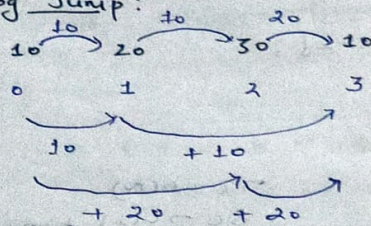 og Jump:
10 10 20
10 20 30 10
0 1 2 3
10 + 10
+ 20 + 20